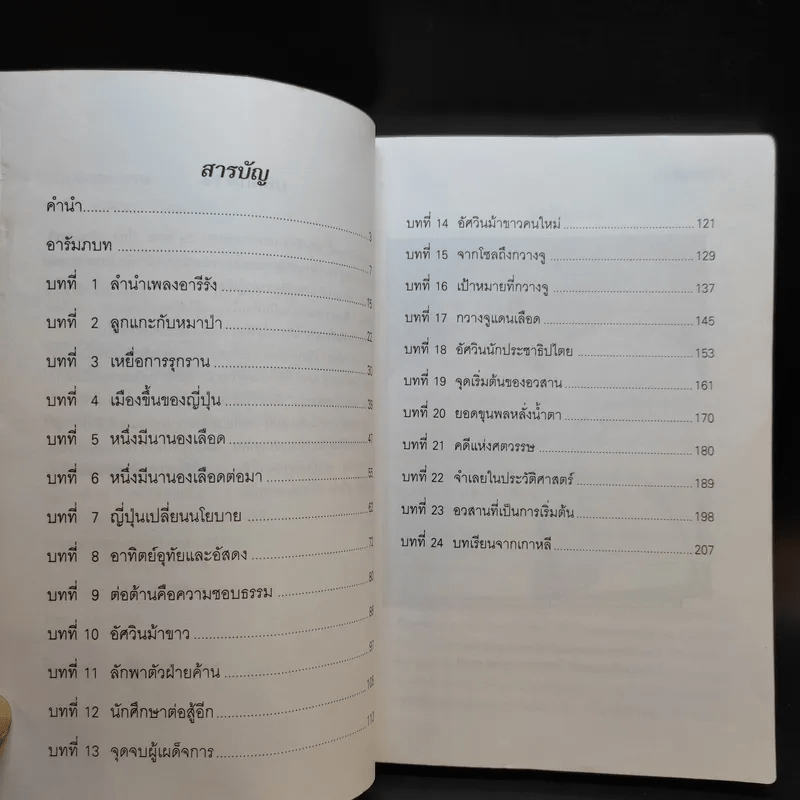 สารบัญ
คำนำ 3
อารัมภบท 7
บทที่ 1 ลำนำเพลงอารีรัง 15
บทที่ 2 ลูกแกะกับหมาป่า 22
บทที่ 3 เหยื่อการรุกราน 30
บทที่ 4 เมืองขึ้นของญี่ปุ่น 39
บทที่ 5 หนึ่งมีนานองเลือด 47
บทที่ 6 หนึ่งมีนานองเลือดต่อมา 55
บทที่ 7 ญี่ปุ่นเปลี่ยนนโยบาย 63
บทที่ 8 อาทิตย์อุทัยและอัสดง 72
บทที่ 9 ต่อต้านคือความชอบธรรม 80
บทที่ 10 อัศวินม้าขาว
บทที่ 11 ลักพาตัวฝ่ายค้าน 97
บทที่ 12 นักศึกษาต่อสู้อีก 105
บทที่ 13 จุดจบผู้เผด็จการ
บทที่ 14 อัศวินม้าขาวคนใหม่ 121
บทที่ 15 จากโซลถึงกวางจู 129
บทที่ 16 เป้าหมายที่กวางจู 137
บทที่ 17 กวางจูแดนเลือด 145
บทที่ 18 อัศวินนักประชาธิปไตย 153
บทที่ 19 จุดเริ่มต้นของอวสาน 161
บทที่ 20 ยอดขุนพลหลั่งน้ำตา 170
บทที่ 21 คดีแห่งศตวรรษ 180
บทที่ 22 จำเลยในประวัติศาสตร์ 189
บทที่ 23 อวสานที่เป็นการเริ่มต้น 198
บทที่ 24 บทเรียนจากเกาหลี 207